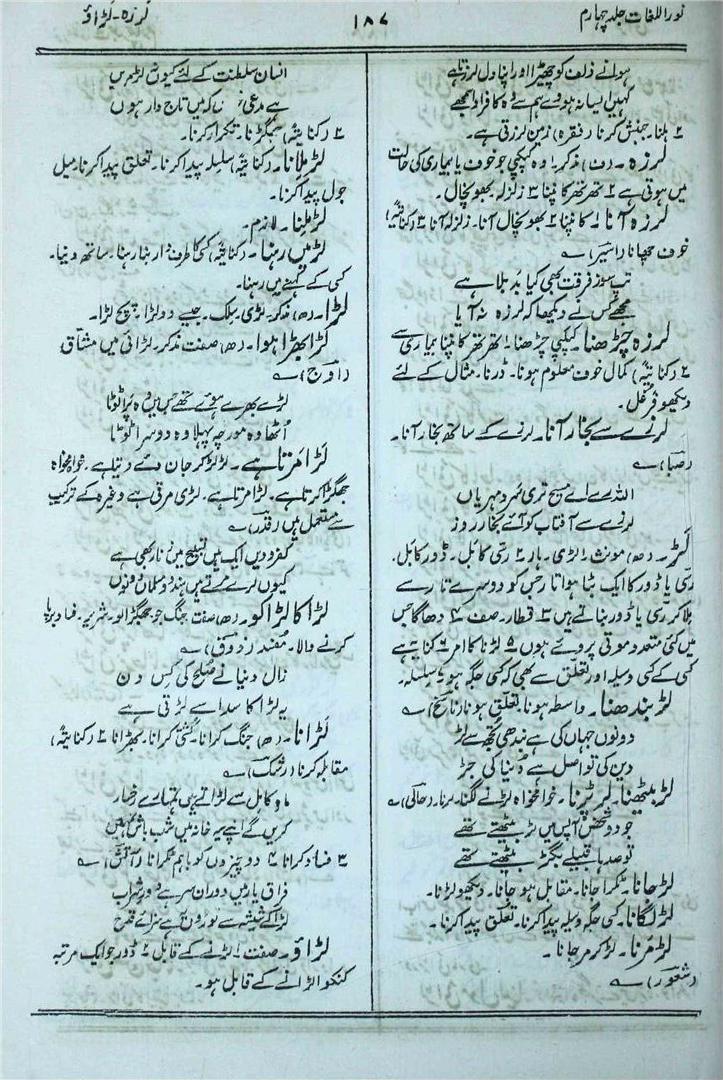 نوراللغات جلد چہارم
۱۸۷
لرزہ۔لڑاؤ
ہوانے زلف کو چھیڑا اور اپنا دل لرزتا ہے
کہیں ایسا نہ ہووے ہم سے وہ کافر ادا سمجھے
۲ ہلنا۔ جنبش کرنا (فقرہ) زمین لرزتی ہے۔
لرزہ۔ (ف) مذکر۔ ۱ وہ کپکپی جو خوف یا بیماری کی حالت
میں ہوتی ہے ۲ تھرتھر کانپنا ۳ زلزلہ۔ بھونچال۔
لرزہ آنا۔ ۱ کانپنا ۲ بھونچال آنا۔ زلزلہ آنا ۳ (کنایۃً)
خوف چھانا (اسیر) ؎
تپ سوز فرقت بھی کیا بد بلا ہے
مجھے کس نے دیکھا کہ لرزہ نہ آیا
لرزہ چڑھنا۔ کپکپی چڑھنا۔ ۱ تھرتھر کانپنا بیماری سے
۲ (کنایۃً) کمال خوف معلوم ہونا۔ ڈرنا۔ مثال کے لئے
دیکھو قرغل۔
لرزے سے بخار آنا۔ لرزے کے ساتھ بخار آنا۔
(صبا) ؎
اللہ رے اے مسیح تری سرد مہریاں
لرزے سے آفتاب کو آئے بخار روز
لڑ۔ (ھ) مونث۔ ۱ لڑی۔ ہار ۲ رسی کا بل۔ ڈور کا بل۔
رسی یا ڈور کا ایک بٹا ہوا تار جس کو دوسرے تار سے
ملا کر رسی یا ڈور بناتے ہیں ۳ قطار۔ صف ۴ دھاگا جس
میں کئی متعدد موتی پروئے ہوں ۵ لڑنا کا امر ۶ کنایہ ہے
کسی کے کسی وسیلہ اور تعلق سے بھی کسی جگہ ہو ۷ سلسلہ۔
لڑ بندھنا۔ واسطہ ہونا۔ تعلق ہونا (ناسخ) ؎
دونوں جہاں کی ہے بندھی تجھ سے لڑ
دین کی تو اصل ہے دنیا کی جڑ
لڑ بیٹھنا۔ لڑ پڑنا۔ خواہ مخواہ لڑنے لگنا۔ لڑنا۔ (حالی) ؎
جو دو شخص آپس میں لڑ بیٹھتے تھے
تو صدہا قبیلے بگڑ بیٹھتے تھے
لڑ جانا۔ ٹکرا جانا۔ مقابل ہو جانا۔ دیکھو لڑنا۔
لڑ لگانا۔ کسی جگہ وسیلہ پیدا کرنا۔ تعلق پیدا کرنا۔
لڑ مرنا۔ لڑ کر مر جانا۔
(شعور) ؎
انسان سلطنت کے لئے کیوں نہ لڑ مریں
ہے مدعی کہ میں تاج دار ہوں
۲ (کنایۃً) جھگڑنا۔ تکرار کرنا۔
لڑ ملانا۔ (کنایۃً) سلسلہ پیدا کرنا۔ تعلق پیدا کرنا۔ میل
جول پیدا کرنا۔
لڑ ملنا۔ لازم۔
لڑ میں رہنا۔ (کنایۃً) کسی کا طرف دار بنا رہنا۔ ساتھ دینا۔
کسی کے کہنے میں رہنا۔
لڑا۔ (ھ) مذکر۔ لڑی۔ سلک۔ جیسے دولڑا۔ پچ لڑا۔
لڑا بھڑا ہوا۔ (ھ) صفت مذکر۔ لڑائی میں مشاق
(اوج) ؎
لڑے بھڑے ہوئے تھے جس میں وہ پرا ٹوٹا
اٹھا وہ مورچہ پہلا وہ دوسرا ٹوٹا
لڑا مرتا ہے۔ لڑ لڑ کر جان دئے دیتا ہے۔ خواہ مخواہ
جھگڑا کرتا ہے۔ لڑا مرتا ہے۔ لڑی مرتی ہے وغیرہ کے ترکیب
سے مستعمل ہیں (قدر) ؎
کفر و دیں ایک ہیں تسبیح میں زنار بھی ہے
کیوں لڑے مرتے ہیں ہندو و مسلمان دونوں
لڑاکا لڑاکو۔ (ھ) صفت جنگ جو۔ جھگڑالو۔ شریر۔ فساد برپا
کرنے والا۔ مفسد (ذوق) ؎
زال دنیا نے صلح کی کس دن
یہ لڑاکا سدا سے لڑتی ہے
لڑانا۔ (ھ) جنگ کرانا۔ کشتی کرانا۔ بھڑانا ۲ (کنایۃً)
مقابلہ کرنا (رشک) ؎
ماہ کامل سے لڑاتے ہیں تمہارے رخسار
کریں گے اپنے سیہ خانہ میں شب باش کہیں
۳ فساد کرانا ۴ دو چیزوں کو باہم ٹکرانا (آتش) ؎
فراق یار میں دوران سر ہے دور شراب
لڑا کے شیشہ سے توڑوں سزائے قدح
لڑاؤ۔ صفت ۱ لڑنے کے قابل ۲ ڈور جو ایک مرتبہ
کنکوا لڑانے کے قابل ہو۔